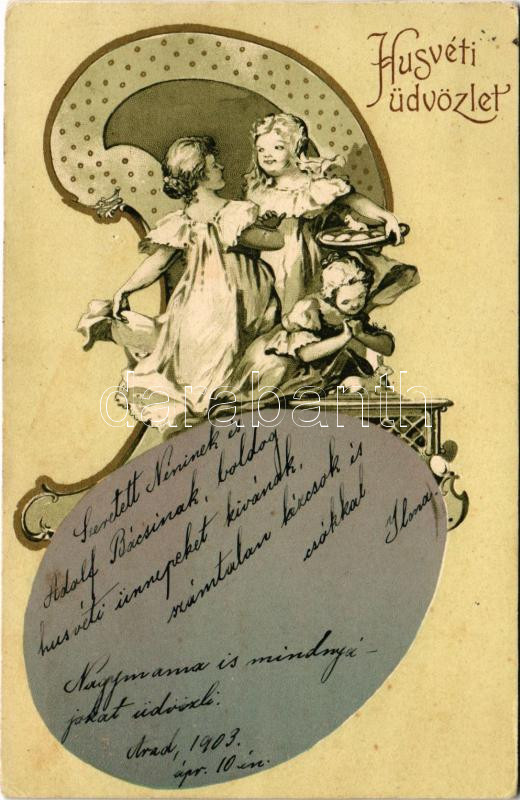 Husvéti
üdvözlet
darabanth
Szeretett Néninek és
Adolf Bácsinak, boldog
husvéti ünnepeket kivánok,
számtalan kézcsok és
csókkal
Ilona
Nagymama is mindnyá-
jokat üdvözli.
Arad, 1903.
ápr. 10-én.